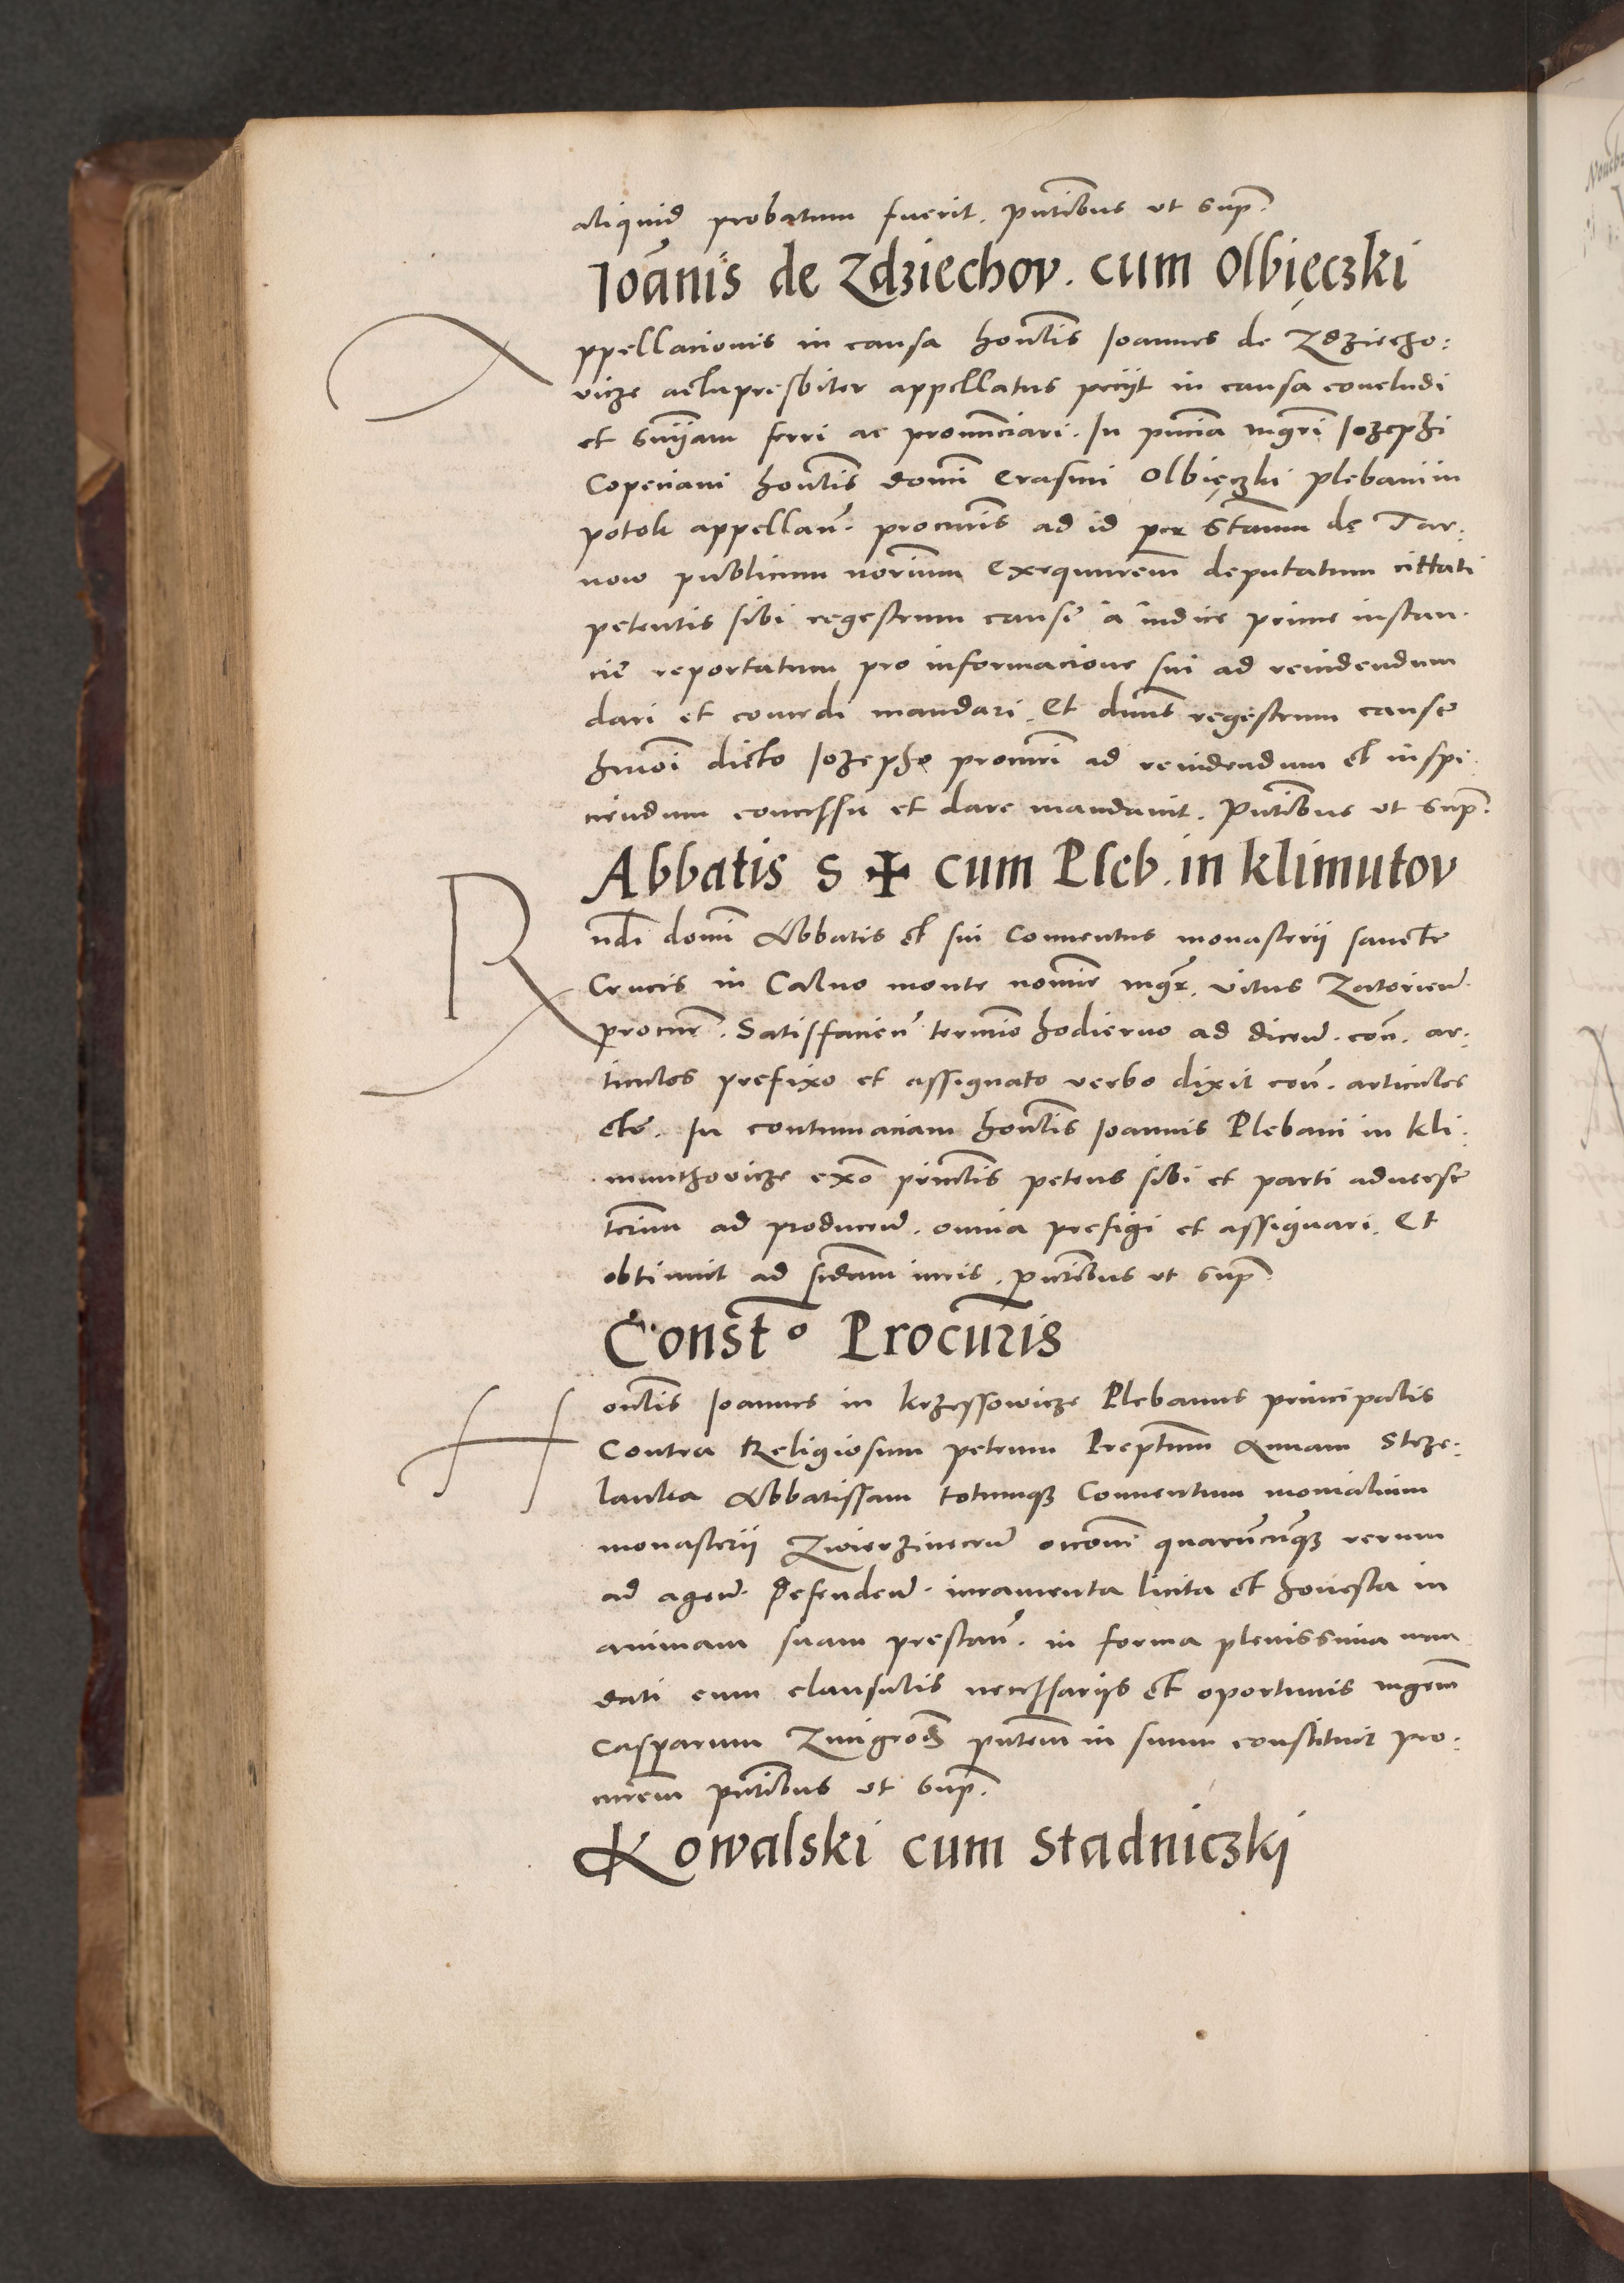 aliquid probatum fuerit. pñtibus ut sup̃.
Ioãnis de Zdziechov. cum Olbięczki
Appellacionis in causa honlis Ioannes de Zdziecho:
vicze actu presbiter appellatus peciit in causa concludi
et sniiam ferri ac pronunciari. In pñcia mgri Iozephi
Copeciani honlis domi Erasmi Olbięczki plebani in
potok appellañ. procuris ad id per Stanm de Tar:
now publicum norium exequutrem deputatum cittati
petentis sibi regestrum cause a iudice prime instan:
cie reportatum pro informacione sui ad reuidendum
dari et concedi mandari. Et dnus regestrum cause
hmoi dicto Iozepho procuri ad reuidendum et inspi:
ciendum concessit et dare mandauit. Pñtibus ut sup̃.
Abbatis S ✠ cum Pleb. in Klimutov
Rndi domi Abbatis et sui Conuentus monasterii sancte
Crucis in Caluo monte nomine mgr. vitus Zatorien̄
procur̃. Satisfacieñ termino hodierno ad diceñ. coñ. ar:
ticulos prefixo et assignato verbo dixit coñ. articulos
etc̃. In contumaciam honlis Ioannis Plebani in Kli:
munthovicze exõ princlis petens sibi et parti aduerse
terinum ad produceñ. omnia prefigi et assignari. Et
obtinuit ad sedam iuris. pñtibus ut sup̃.
Const̃º Procuris
Honlis Ioannes in Krzessowicze Plebanus principalis
Contra Religiosum petrum Preptum Annam Strze:
lanka Abbatissam totumqȝ Conuentum monialium
monasterii Zwierzinecen̄ occone quarũcunqȝ rerum
ad agen̄. Defenden̄. iuramenta licita et honesta in
animam suam prestañ. in forma plenissima man
dati cum clausulis necessariis et oportunis mgrum
Casparum Zmigrod pñtem in suum constituit pro:
curem pñtibus ut sup̃.
Kowalski cum Stadniczki